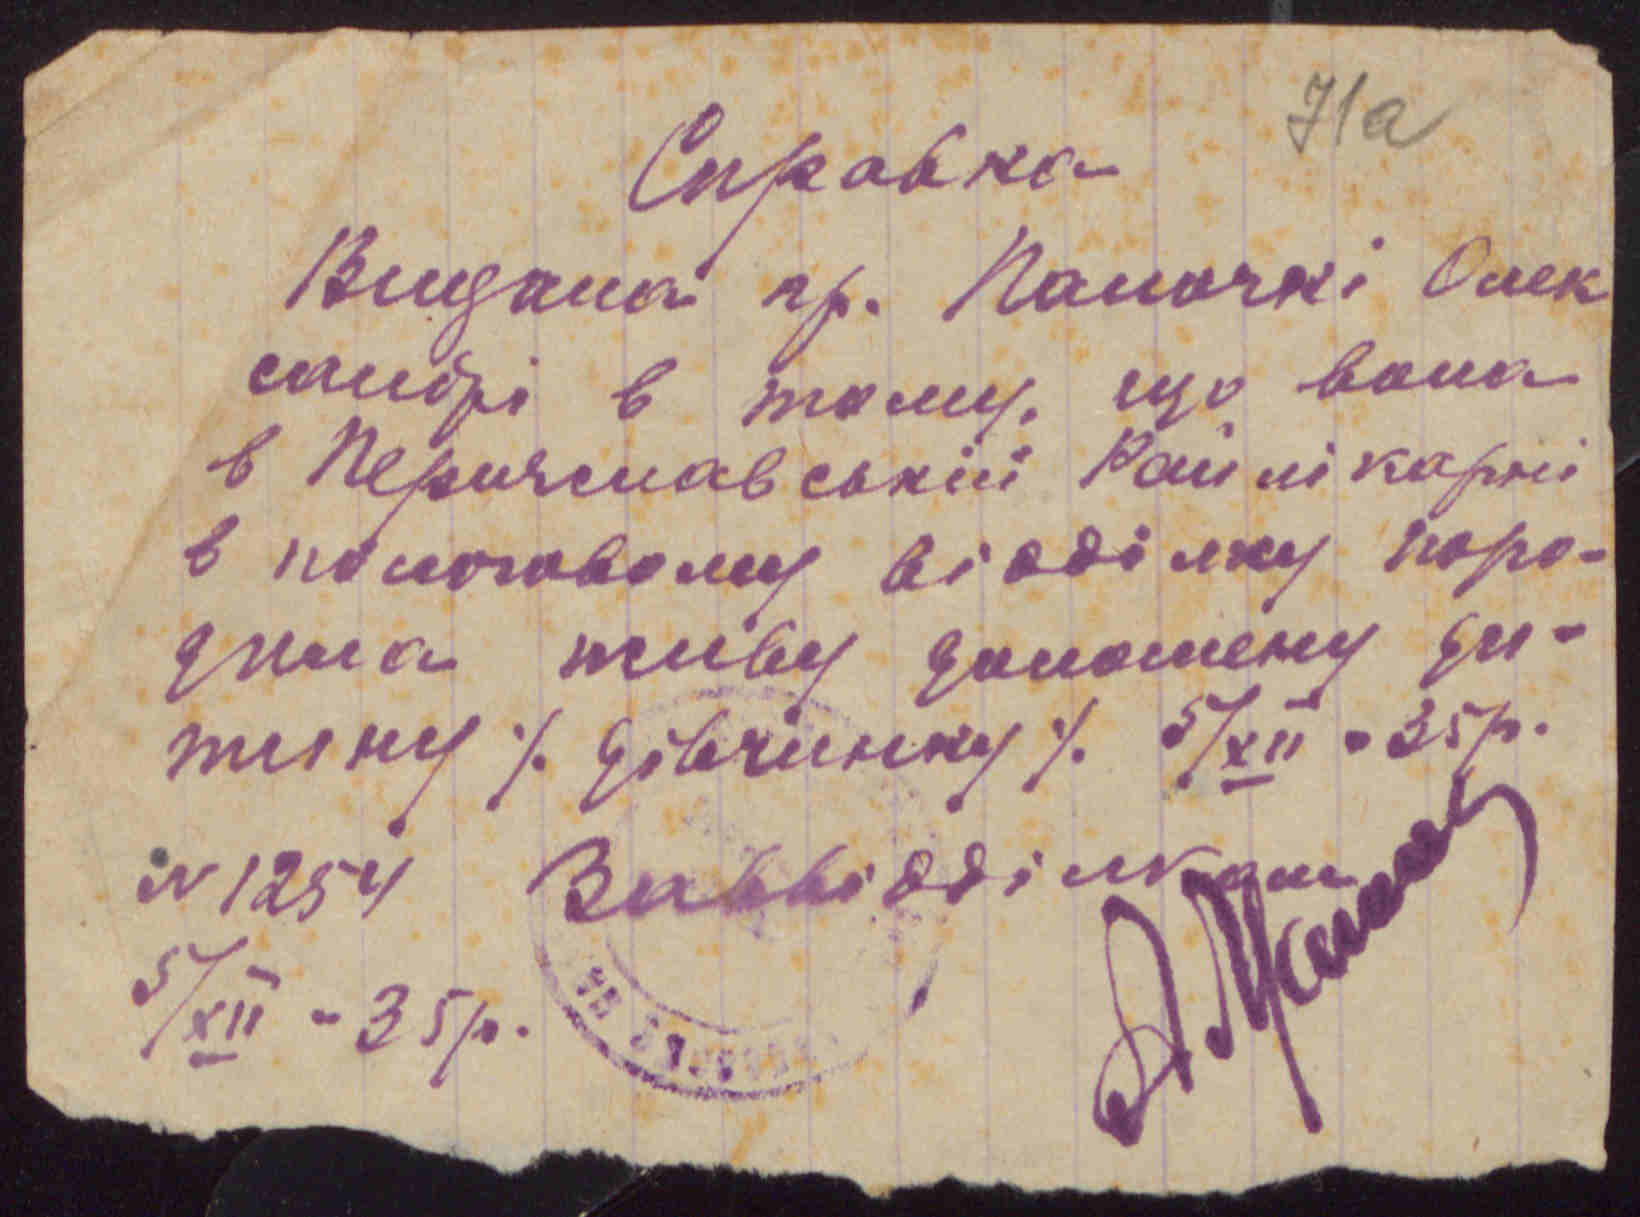 71а
Справка
Видана гр. Палочкі Олек
сандрі в тому, що вона
в Переяславській Райлікарні
в пологовому відділку наро-
дила живу доношену ди-
тину /. дівчинку /. 5/XII - 35р.
N 1254 Заввідділком
5/XII - 35р.